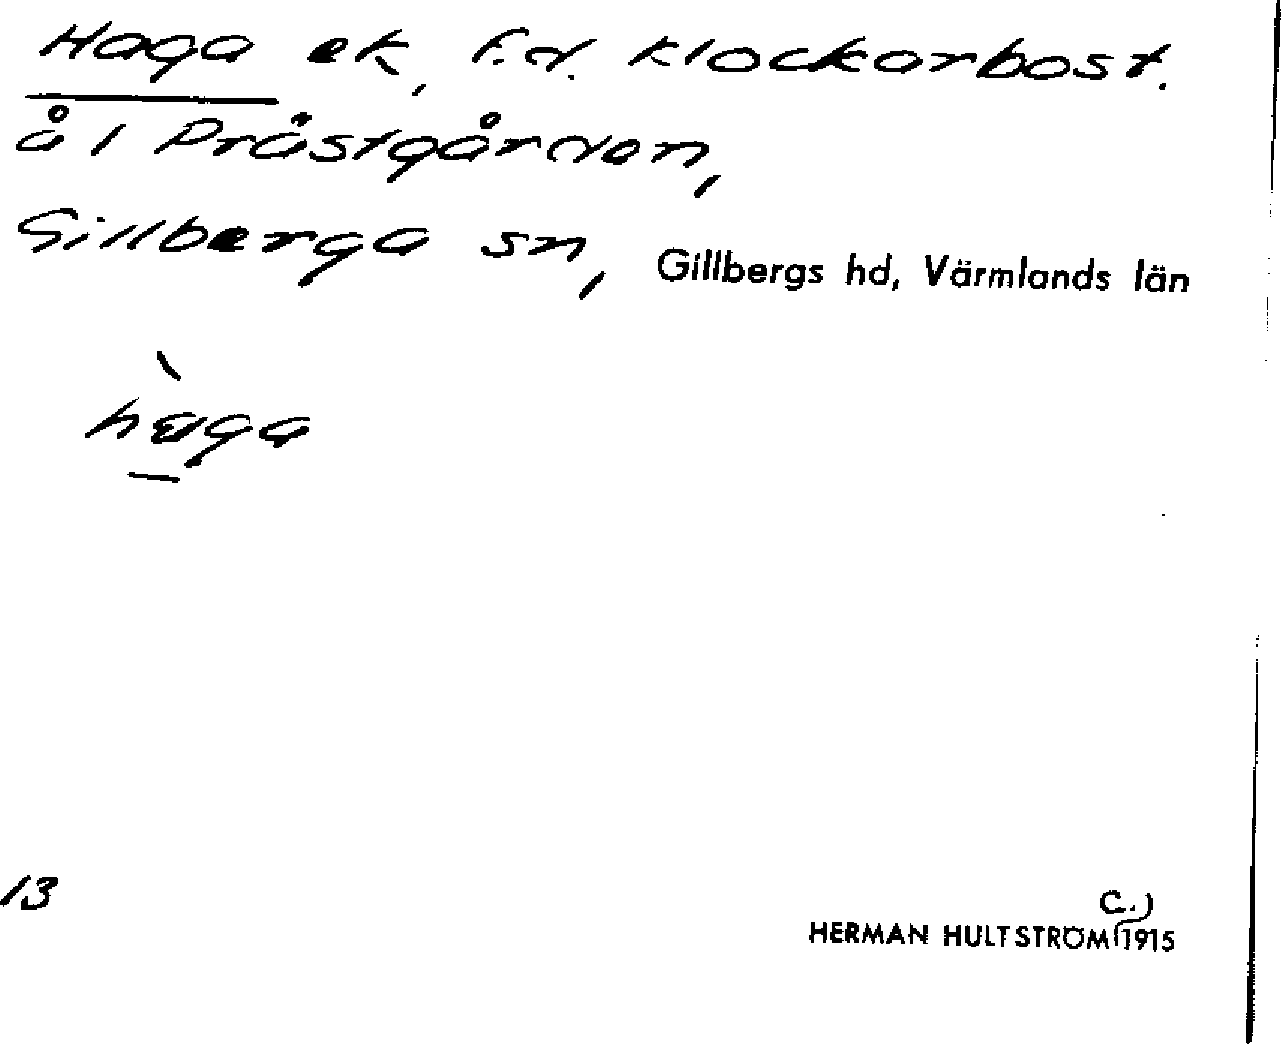 Haga ek, f.d. klockarbost.
å 1 Prästgården,
Gillberga sn, Gillbergs hd, Värmlands län
hàga
13
C.)
HERMAN HULTSTRÖM 1915